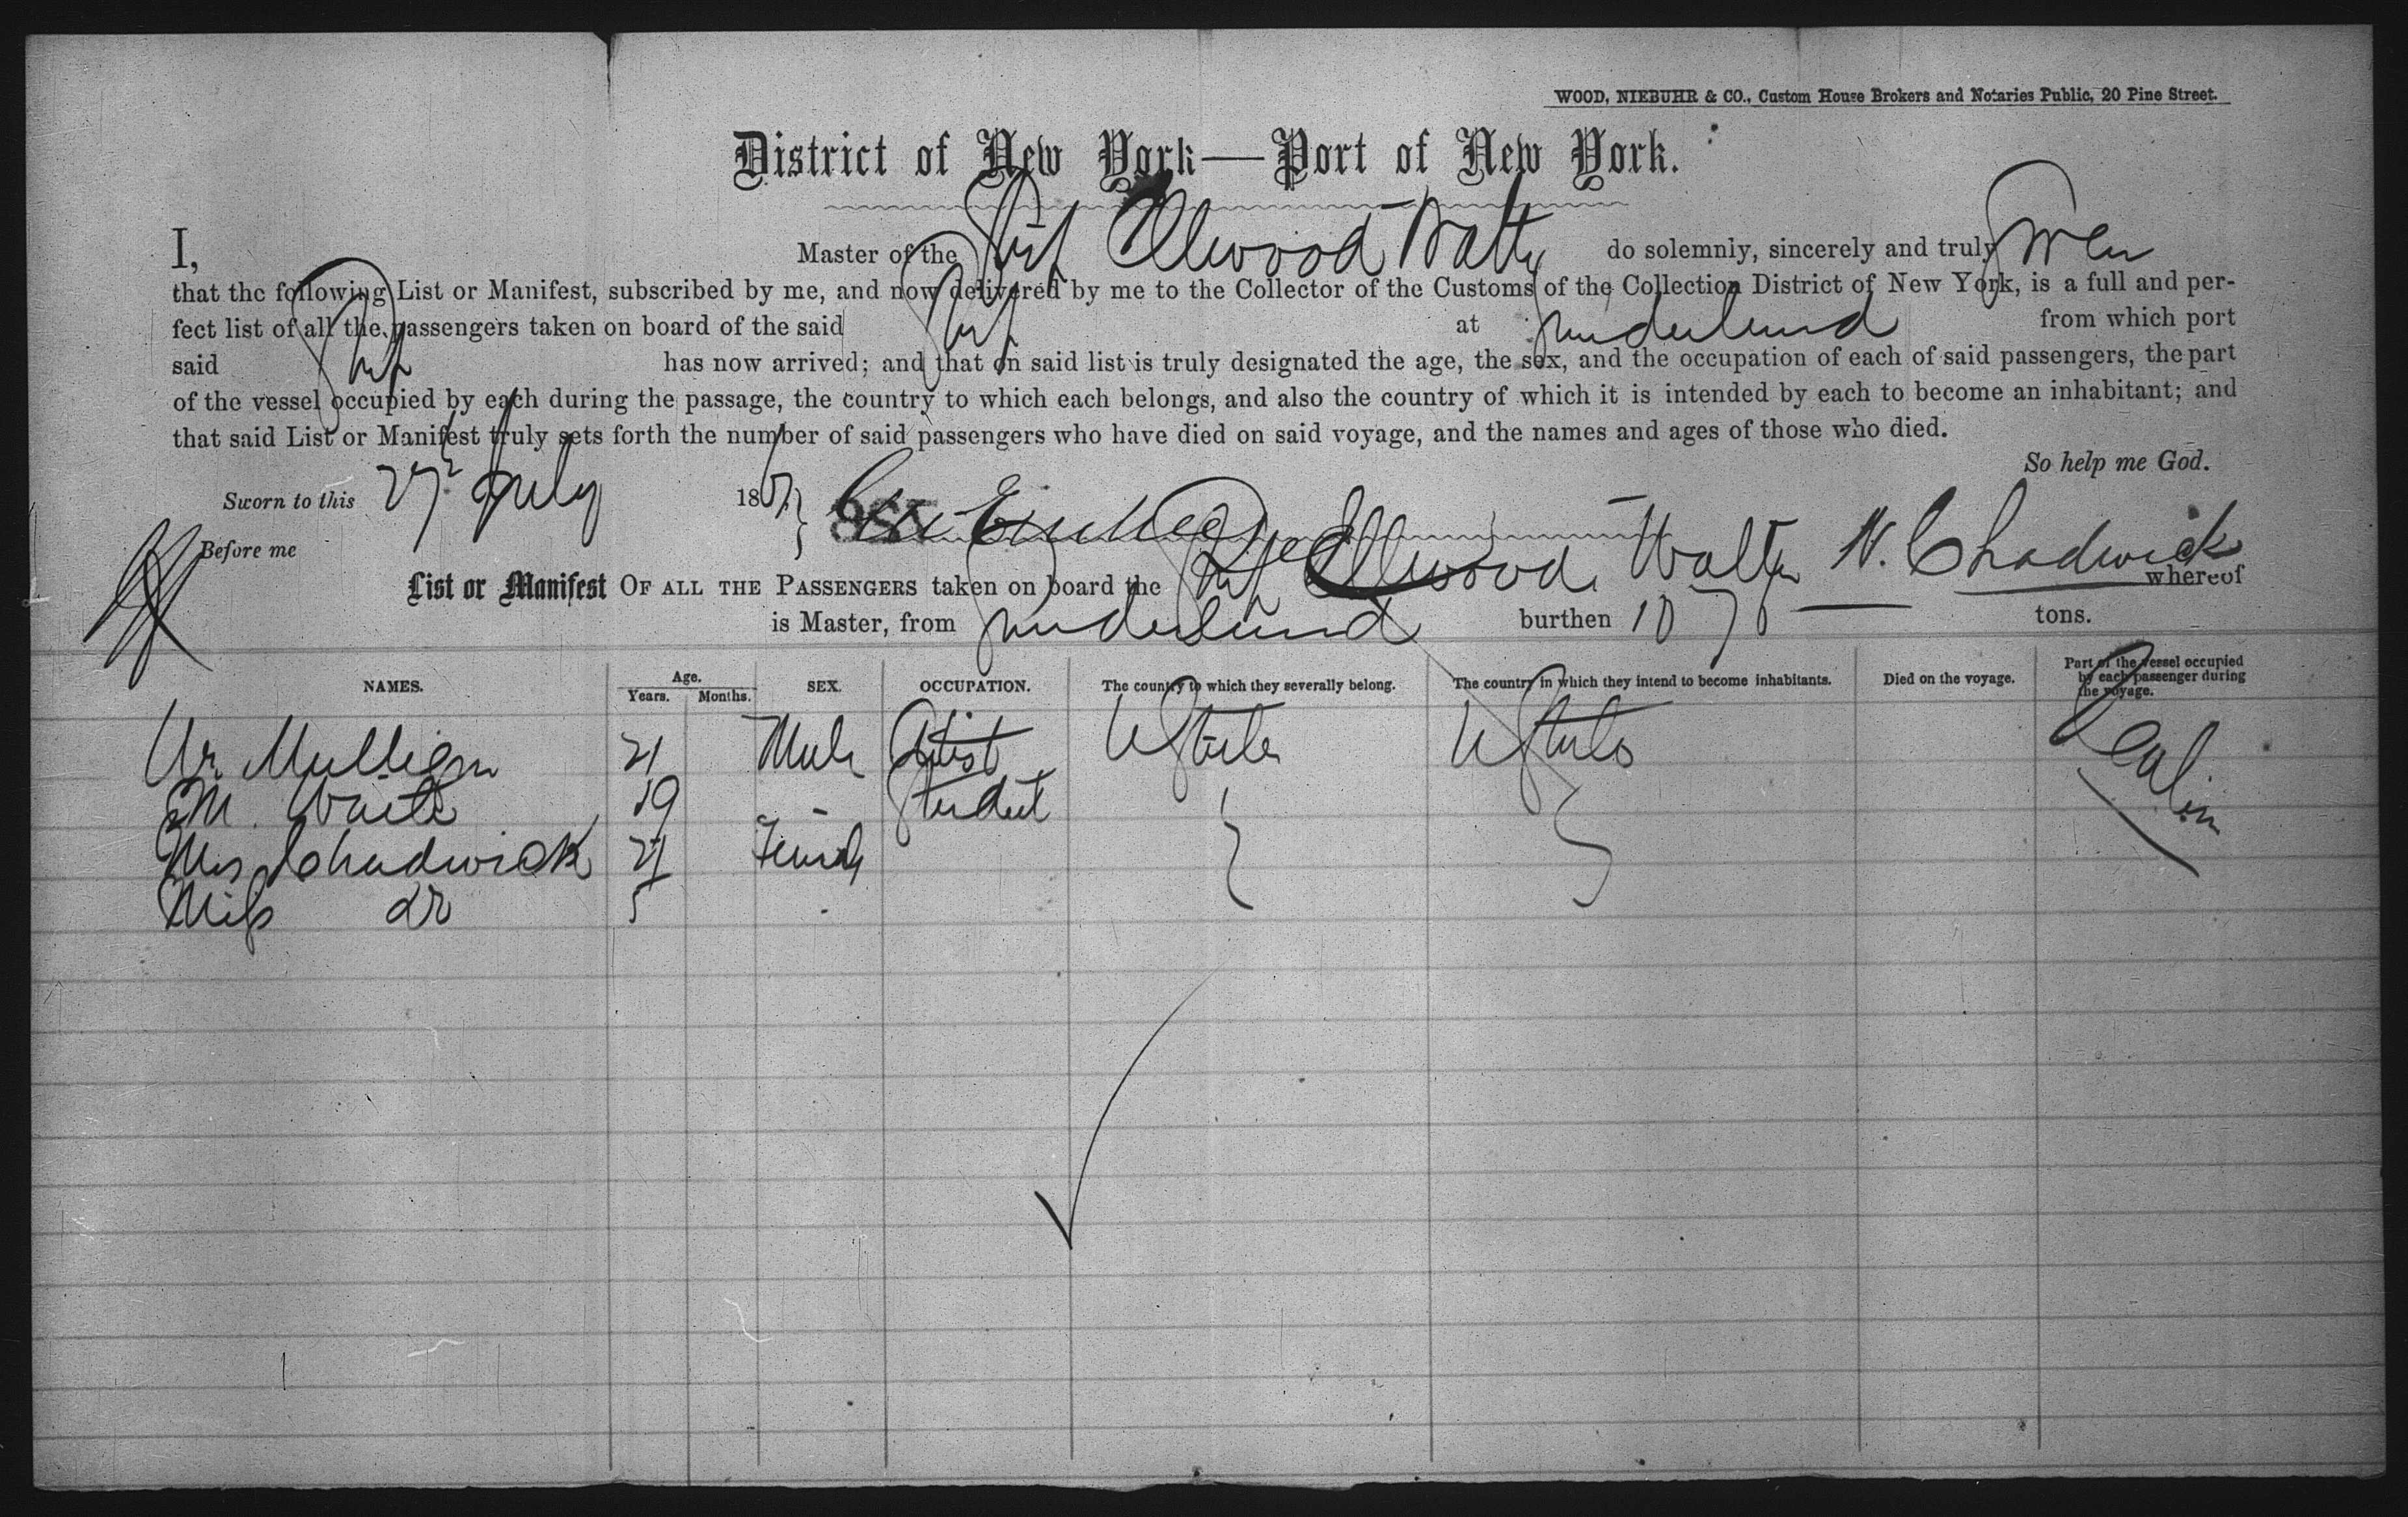 WOOD, NIEBUHR & CO., Custom House Brokers and Notaries Public, 20 Pine Street.
District of New York—Port of New York.
I, Master of the Ship Ellwood Walter do solemnly, sincerely and truly swear
that the following List or Manifest, subscribed by me, and now delivered by me to the Collector of the Customs of the Collection District of New York, is a full and per-
fect list of all the passengers taken on board of the said Ship at Sunderland from which port
said Ship has now arrived; and that on said list is truly designated the age, the sex, and the occupation of each of said passengers, the part
of the vessel occupied by each during the passage, the country to which each belongs, and also the country of which it is intended by each to become an inhabitant; and
that said List or Manifest truly sets forth the number of said passengers who have died on said voyage, and the names and ages of those who died.
So help me God.
Sworn to this 27 July 18
Before me
List or Manifest OF ALL THE PASSENGERS taken on board the Ship Ellwood Walter N. Chadwick whereof
is Master, from Sunderland burthen tons.
NAMES. Age. Years. Months. SEX. OCCUPATION. The country to which they severally belong. The country in which they intend to become inhabitants. Died on the voyage. Part of the vessel occupied by each passenger during the voyage.
Mulligan 21 Male Artist U States U States Cabin
M. Waite 19 - Student
Mrs Chadwick 21 Female
Miss do 5 -